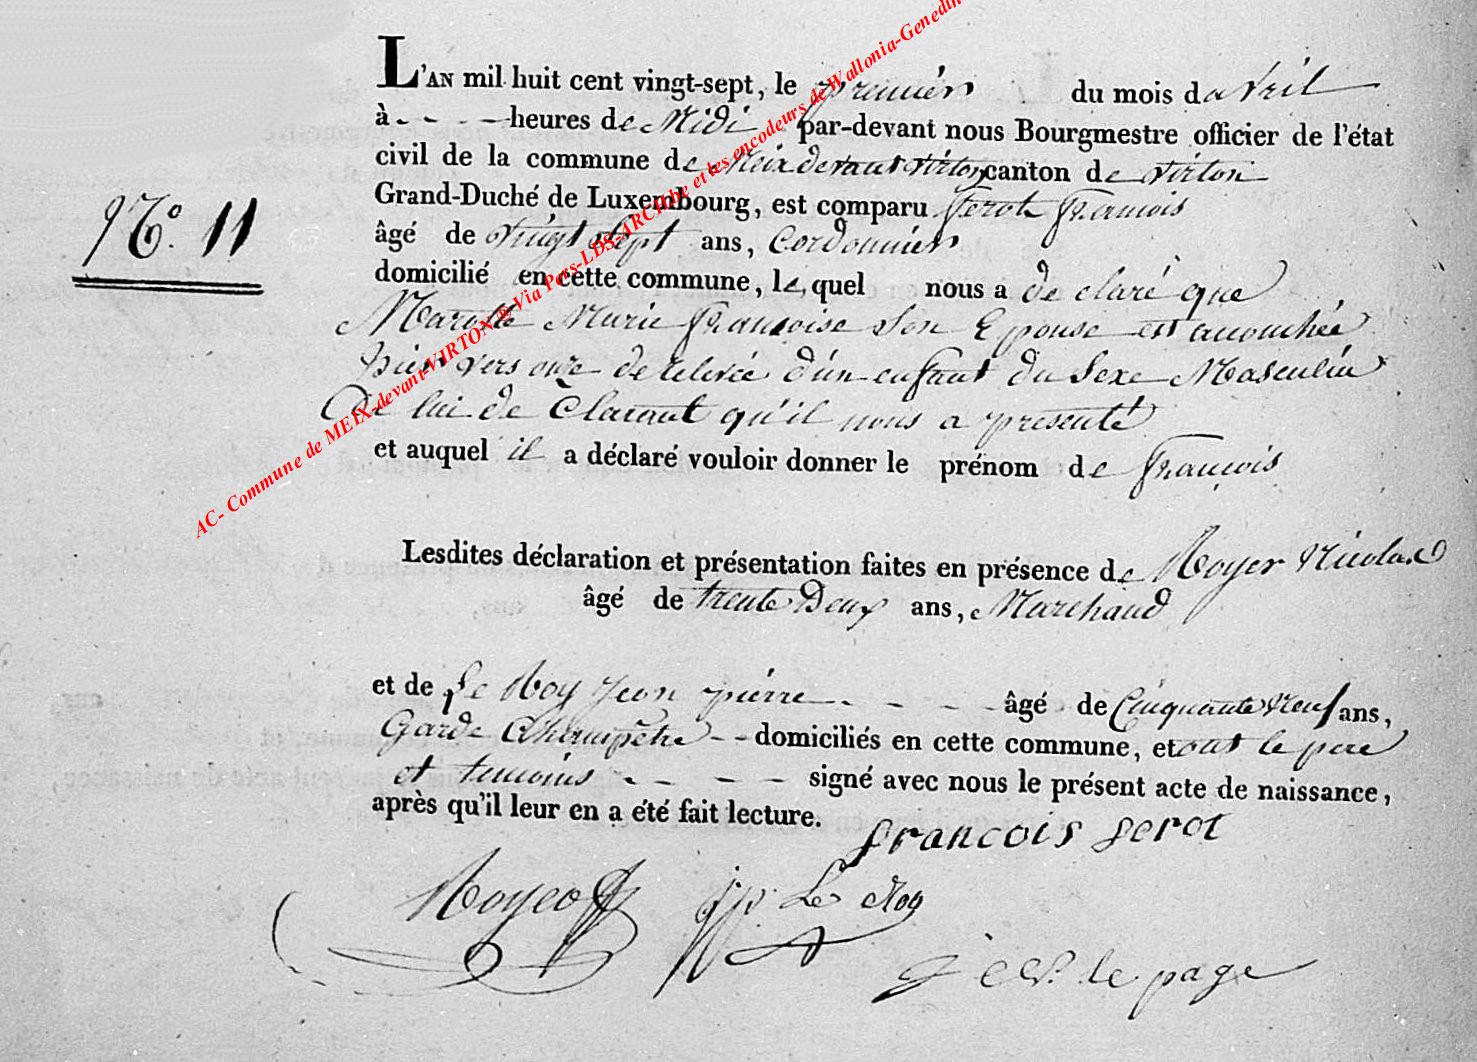 L'AN mil huit cent vingt-sept, le premier du mois d'avril
à - - - - heures de Midi par-devant nous Bourgmestre officier de l'état
civil de la commune de Meix devant virton canton de virton
Grand-Duché de Luxembourg, est comparu ferot françois
N.° 11
âgé de vingt sept ans, Cordonnier
domicilié en cette commune, le quel nous a de claré que
Marie françoise son Epouse est accouchée
hier vers onze de relevée d'un enfant du Sexe Masculin
De lui de Clarant qu'il nous a presenté
et auquel il a déclaré vouloir donner le prénom de françois
AC- Commune de MEIX-devant-VIRTON ® Via Pers-LDS-ARCHbe et les encodeurs de Wallonia-Genedin
Lesdites déclaration et présentation faites en présence de Noyer Nicolas
âgé de trente Deux ans, Marchand
et de Le Roy Jean pierre - - - - âgé de Cinquante Neuf ans,
Garde Champêtre - - domiciliés en cette commune, et ont le pere
et temoins - - - - signé avec nous le présent acte de naissance,
après qu'il leur en a été fait lecture.
francois ferot
j p Le Roy
le page